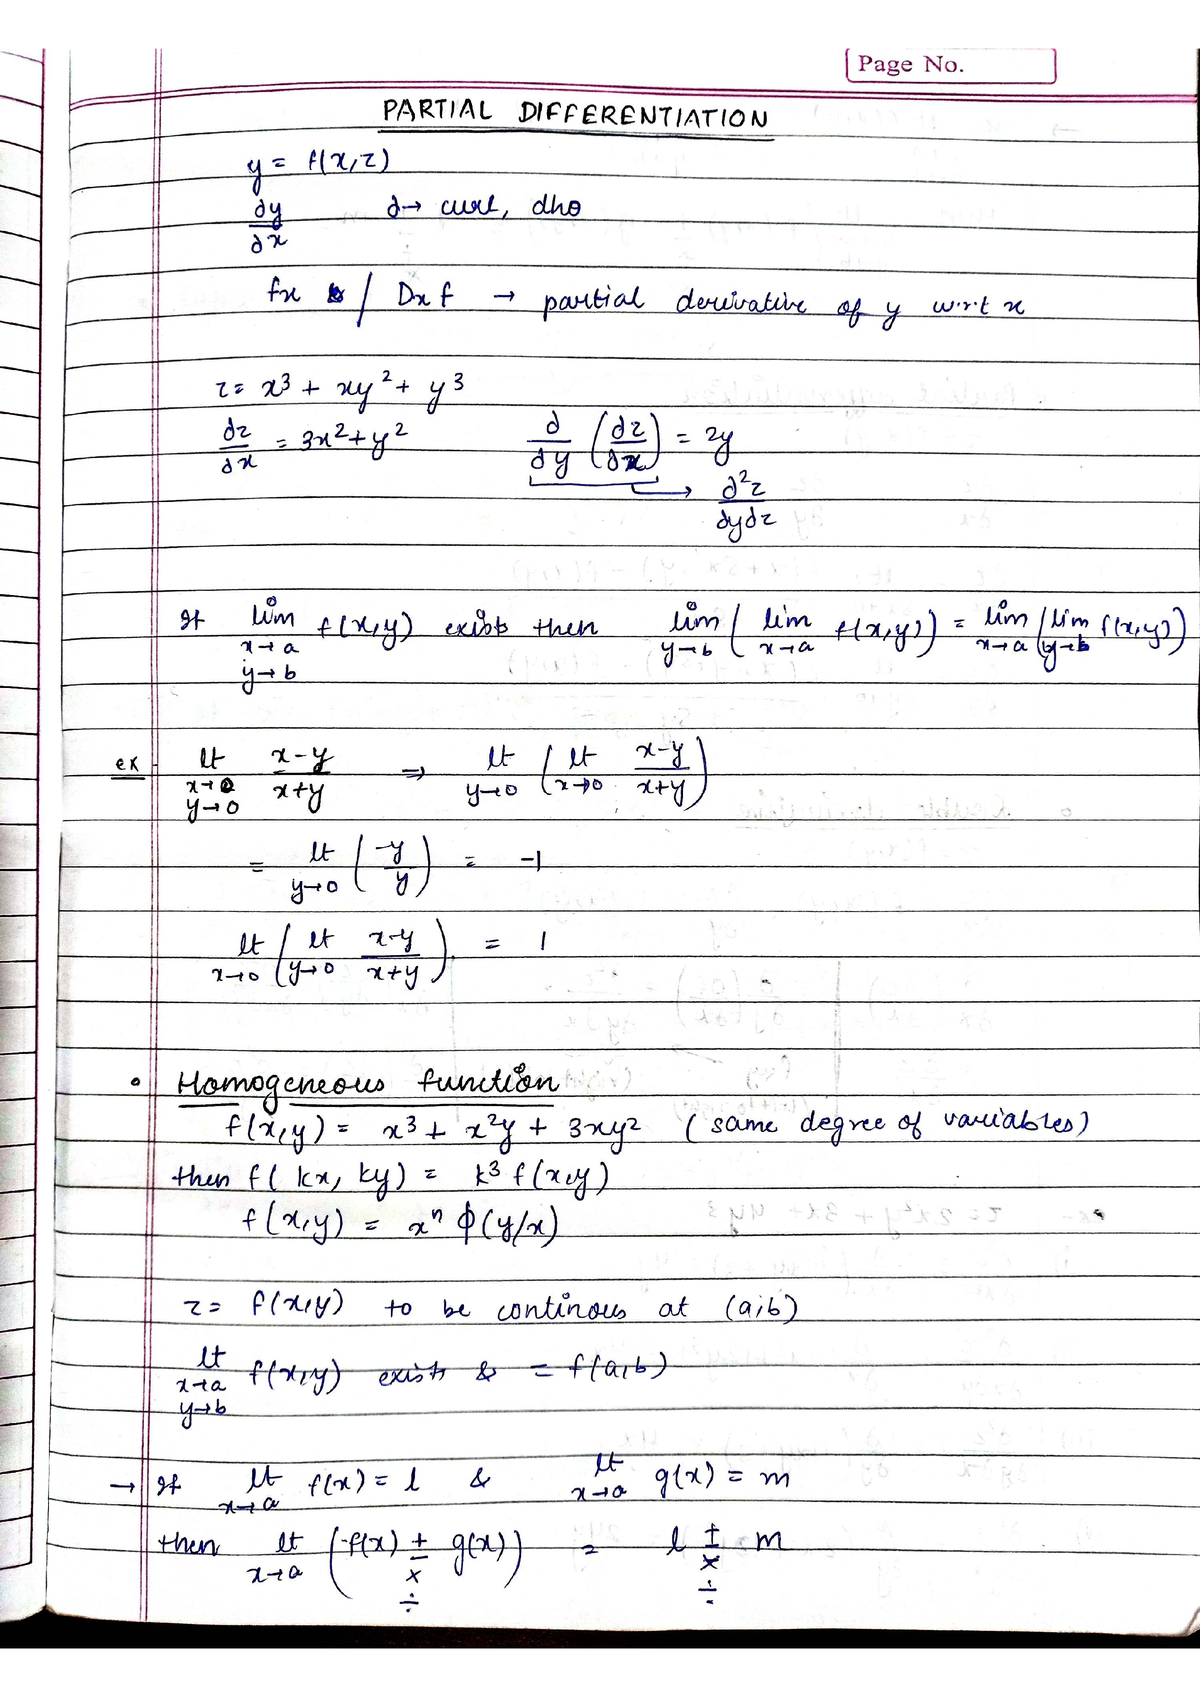 Page No.
PARTIAL DIFFERENTIATION
y = f(x,z)
∂y/∂x    ∂→ curl, dho
fx / Dx f → partial derivative of y w.r.t x
z = x³ + xy² + y³
∂z/∂x = 3x² + y²    ∂/∂y (∂z/∂x) = 2y
→ ∂²z/∂y∂z
If lim x→a y→b f(x,y) exists then lim y→b ( lim x→a f(x,y) ) = lim x→a ( lim y→b f(x,y) )
ex lt x→0 y→0 x-y/x+y ⇒ lt y→0 ( lt x→0 x-y/x+y )
= lt y→0 ( -y/y ) = -1
lt x→0 ( lt y→0 x-y/x+y ) = 1
• Homogeneous function
f(x,y) = x³ + x²y + 3xy² ( same degree of variables)
then f( kx, ky) = k³ f(x,y)
f(x,y) = xⁿ ϕ(y/x)
z = f(x,y) to be continous at (a,b)
lt x→a y→b f(x,y) exists & = f(a,b)
→ If lt x→a f(x) = l & lt x→a g(x) = m
then lt x→a ( f(x) ± × ÷ g(x) ) = l ± × ÷ m